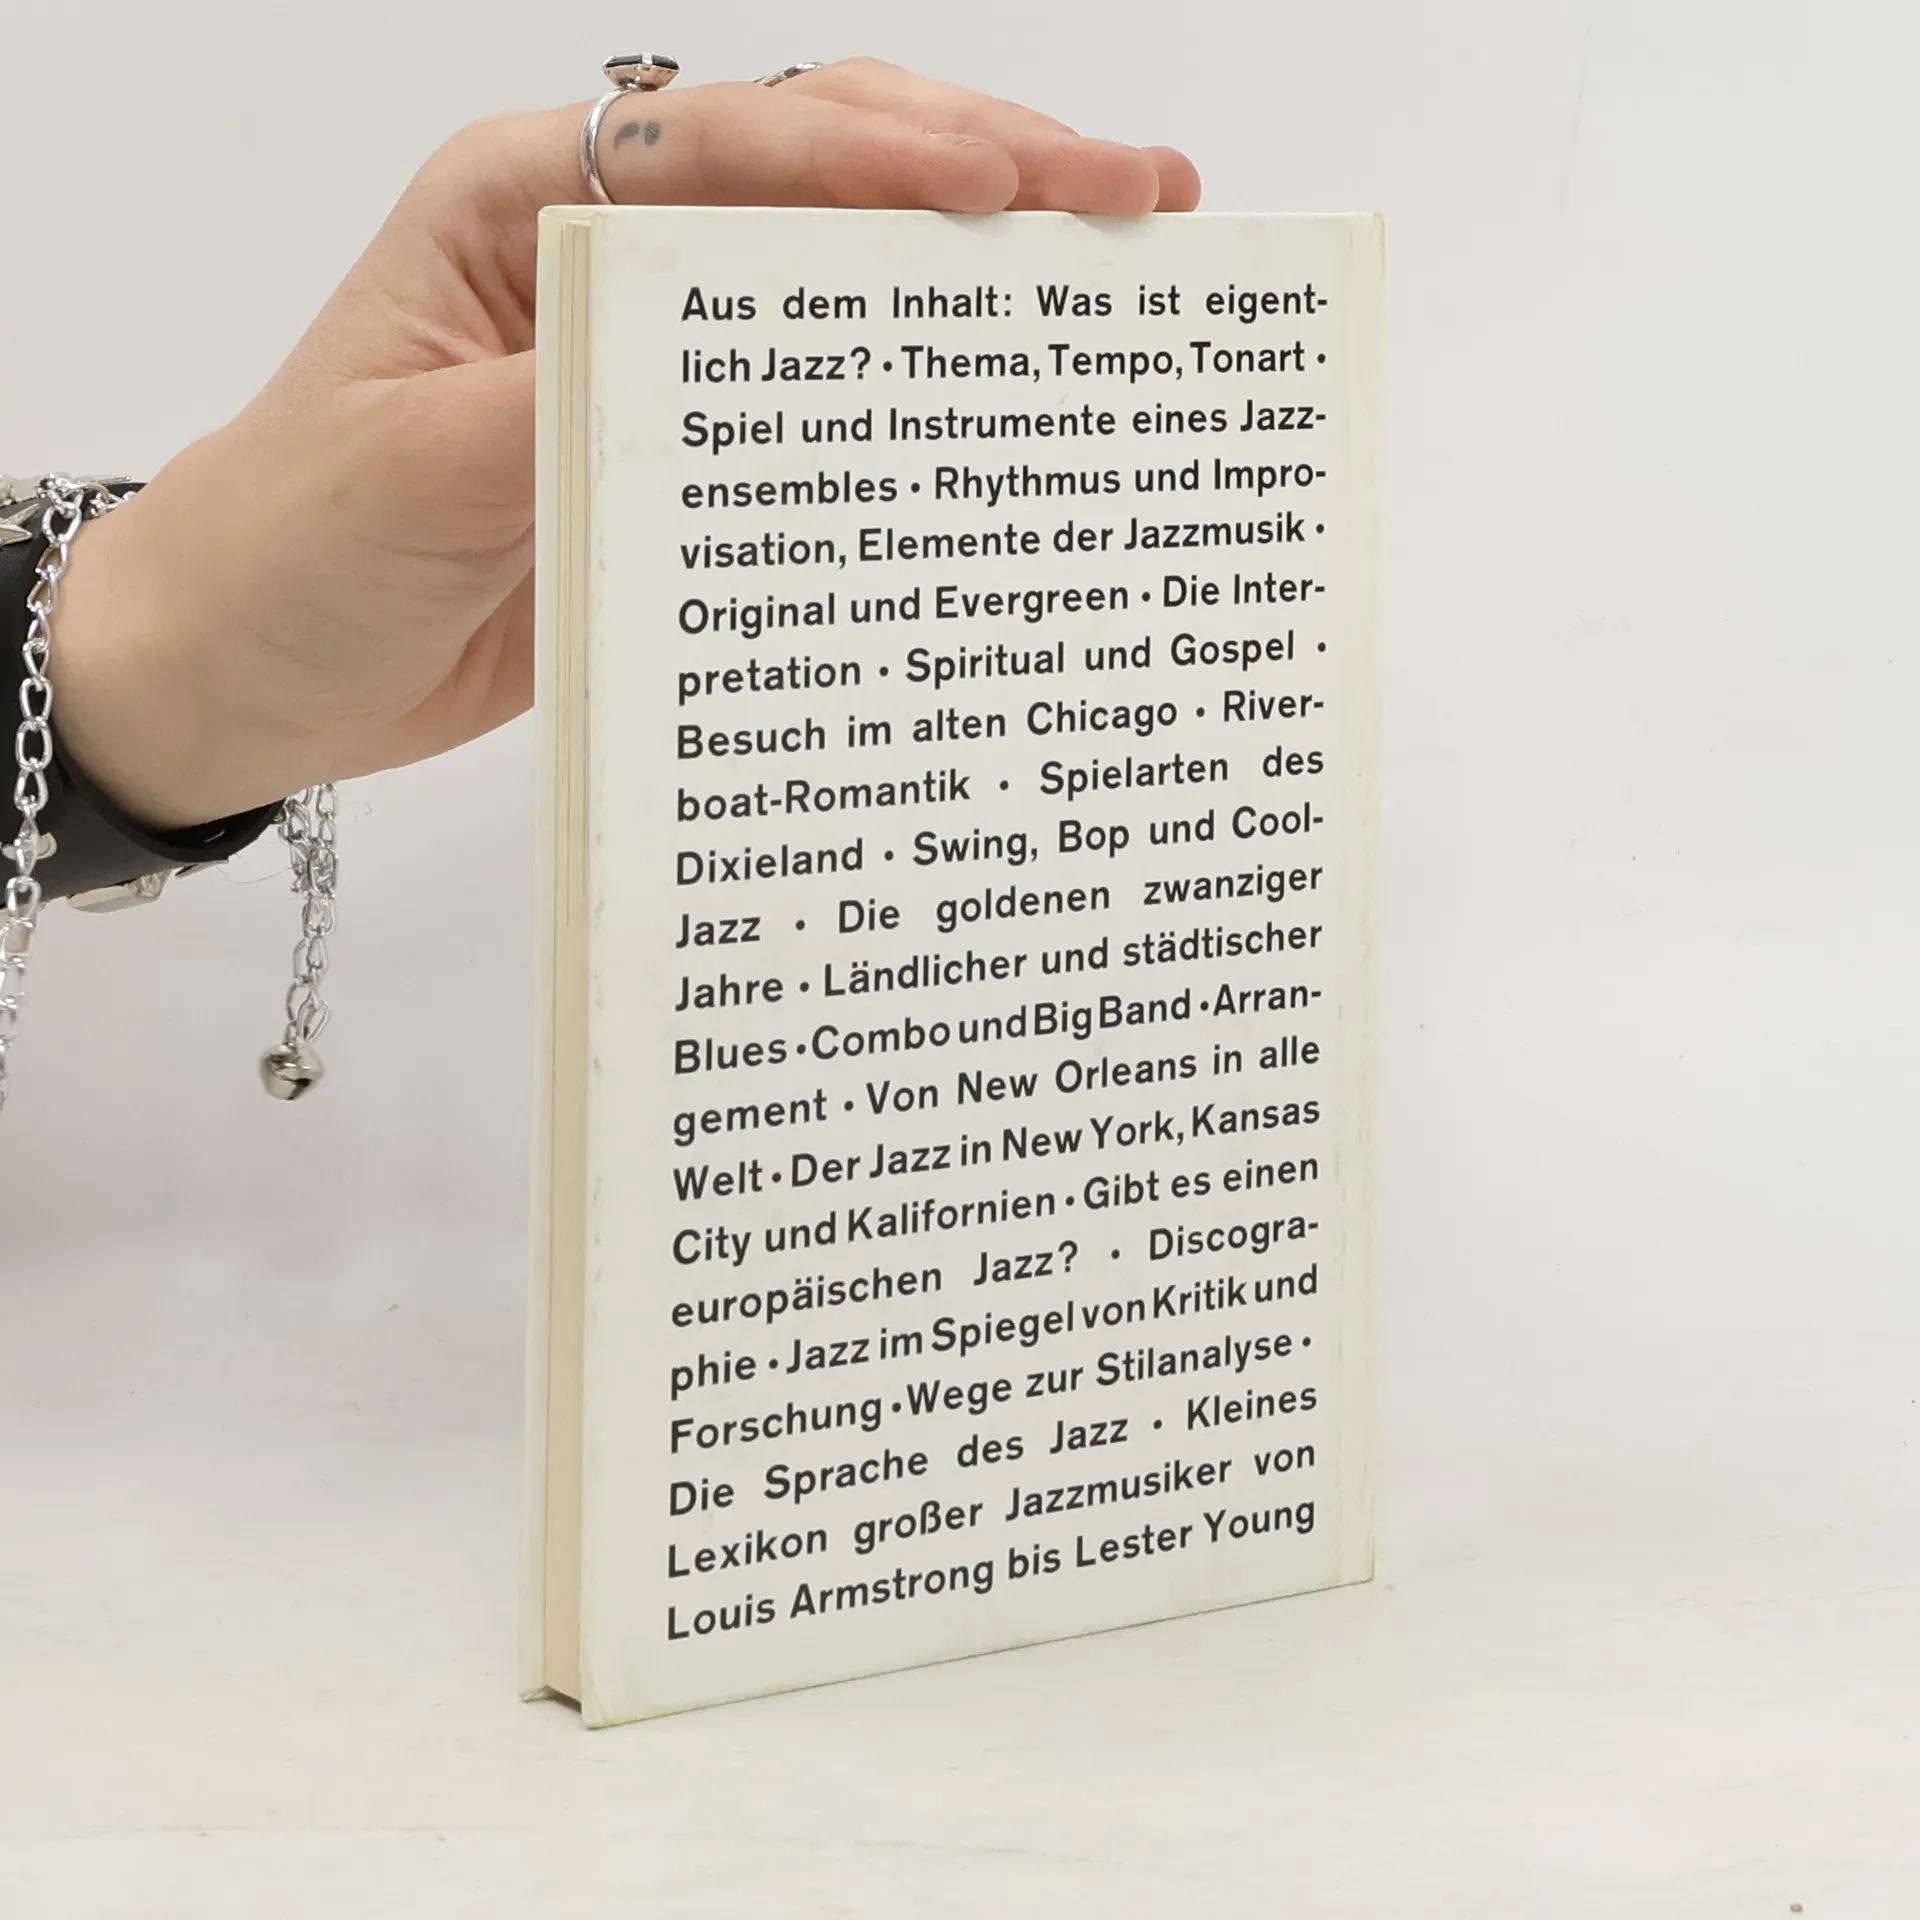 Aus dem Inhalt: Was ist eigent-
lich Jazz? • Thema, Tempo, Tonart •
Spiel und Instrumente eines Jazz-
ensembles • Rhythmus und Impro-
visation, Elemente der Jazzmusik •
Original und Evergreen • Die Inter-
pretation • Spiritual und Gospel •
Besuch im alten Chicago • River-
boat-Romantik • Spielarten des
Dixieland • Swing, Bop und Cool-
Jazz • Die goldenen zwanziger
Jahre • Ländlicher und städtischer
Blues • Combo und Big Band • Arran-
gement • Von New Orleans in alle
Welt • Der Jazz in New York, Kansas
City und Kalifornien • Gibt es einen
europäischen Jazz? • Discogra-
phie • Jazz im Spiegel von Kritik und
Forschung • Wege zur Stilanalyse •
Die Sprache des Jazz • Kleines
Lexikon großer Jazzmusiker von
Louis Armstrong bis Lester Young